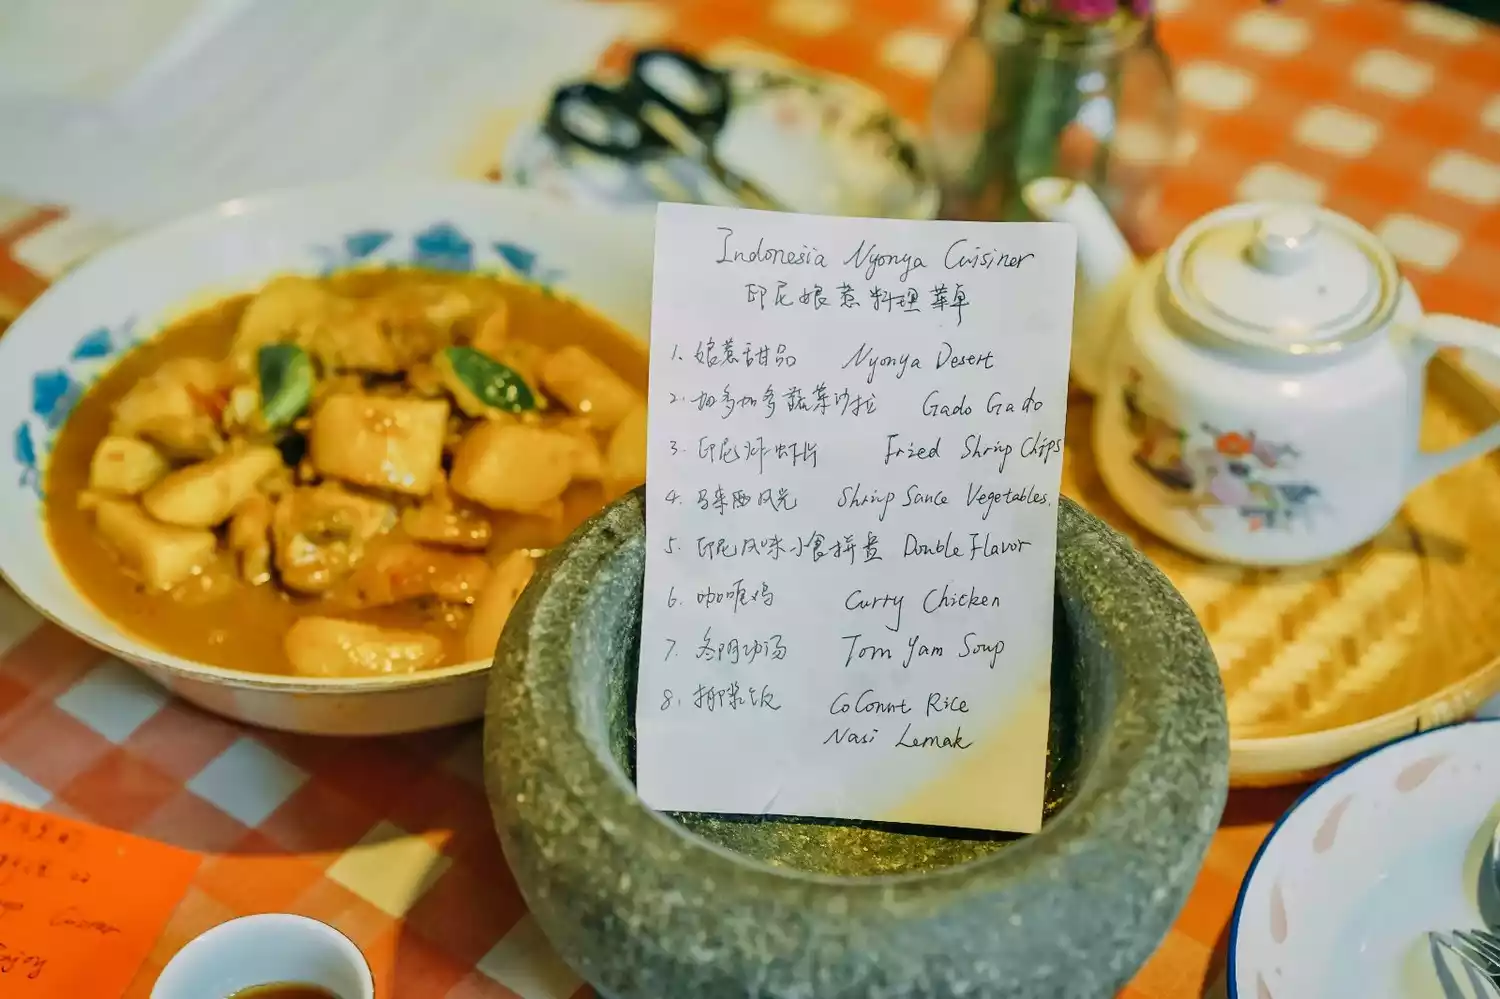 Indonesia Nyonya Cuisiner
印尼娘惹料理菜单
1. 娘惹甜品 Nyonya Desert
2. 加多加多蔬菜沙拉 Gado Gado
3. 印尼炸虾片 Fried Shrip Chips
4. 马来西风光 Shrip Sauce Vegetables.
5. 印尼风味小食拼盘 Double Flavor
6. 咖喱鸡 Curry Chicken
7. 冬阴功汤 Tom Yam Soup
8. 椰浆饭 CoConut Rice
Nasi Lemak
Enjoy